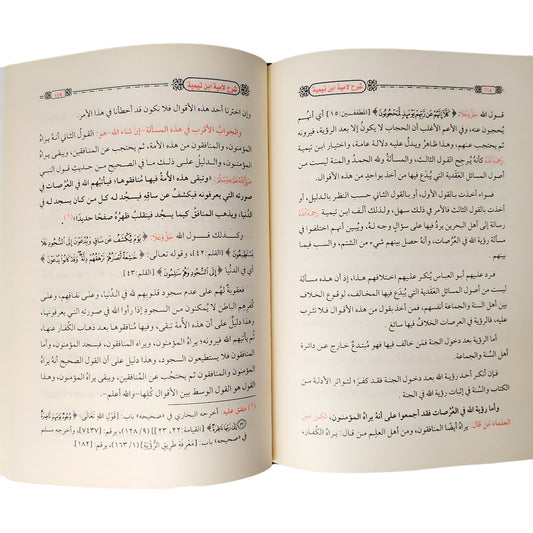 ١١٨
شرح لامية ابن تيمية
قول الله جَلَّ وَعَلَا: ﴿كَلَّا إِنَّهُمْ عَن رَّبِّهِمْ يَوْمَئِذٍ لَّمَحْجُوبُونَ﴾ [المطففين: ١٥] أي أنهم
يُحجبون عنه، وفي الأعم الأغلب أن الحجاب لا يكونُ إلا بعد الرؤية، فيرونه
ثم يُحجبون عنه، وهذا ظاهرٌ ويدلُّ عليه دلالة عامة، واختيار ابن تيمية
رَحِمَهُ اللَّهُ كأنَّه يُرجح القول الثالث، والمسألة سهلةٌ ولله الحمدُ والمنة وليست من
أصول المسائل العَقَدية التي يُبدَّع فيها من أخذ بواحدٍ من هذه الأقوال.
فسواء أخذ بالقول الأول، أو بالقول الثاني حسب النظر بالدليل، أو
بالقول الثالث فالأمر في ذلك سهل، ولذلك ألف ابن تيمية رَحِمَهُ اللَّهُ
رسالةً إلى أهل البحرين يردُّ فيها على سؤالٍ وجه له، أنهم اختلفوا في
مسألة رؤية الله في العَرَصات، وأنه حصل بينهم شيء من الشتم، والسب فيما
بينهم .
فردهم أبو العباس يُنكر عليهم هذا الأمر، إذ أن هذه مسألة ليست
من أصول المسائل العَقَدية التي يُبدَّع فيها المخالف، لوقوع الخلاف
بين أهل السنة والجماعة أنفسهم، فمن أخذ بقول من هذه الأقوال لا نزاع
عليه، فالرؤية في العرصات الخلافُ فيها سائغ .
أما الرؤية بعد دخول الجنة فمن خالف فهو مُبتدعٌ خارج عن دائرة
أهل السنة والجماعة.
فإن أنكر أحد رؤية الله بعد دخول الجنة فقد كفرَ؛ لتواتر الأدلة من
الكتاب والسُّنة في إثبات رؤية الله في الجنة .
وأما رؤية الله في العَرَصات فقد أجمعوا على أنه يراهُ المؤمنون، لكن من
العلماء من قال: يراهُ أيضًا المنافقون، ومن أهل العلم من قال: يراهُ الكُفار،
شرح لامية ابن تيمية
١١٩
وإن اخترنا أحد هذه الأقوال فلا نكون قد أخطأنا في هذا الأمر.
والجواب الأقرب في هذه المسألة -إن شاء الله- هو: القول الثاني أنه يراهُ
المؤمنون، والمنافقون من هذه الأمة، ثم يحتجب عن المنافقين، ويبقى يراهُ
المؤمنون، والدليل على ذلك في الصحيح من حديث قول النبي
صَلَّى اللَّهُ عَلَيْهِ وَسَلَّمَ: «وتبقى هذه الأمة فيها منافقوها، فيأتيهم الله في العَرَصات في
صورته التي يعرفونه فيكشفُ عن ساقِه فيسجدُ له كل من كان يسجد له في
الدنيا، ويذهب المنافق كيما يسجدُ فينقلب ظهرُهُ صفحًا حديدًا»(١).
وكذلك قول الله جَلَّ وَعَلَا: ﴿يَوْمَ يُكْشَفُ عَن سَاقٍ وَيُدْعَوْنَ إِلَى السُّجُودِ فَلَا
يَسْتَطِيعُونَ﴾ [القلم: ٤٢]، وقوله تعالى: ﴿خَاشِعَةً أَبْصَارُهُمْ تَرْهَقُهُمْ ذِلَّةٌ وَقَدْ كَانُوا يُدْعَوْنَ﴾
أي في الدنيا ﴿إِلَى السُّجُودِ وَهُمْ سَالِمُونَ﴾ [القلم: ٤٣].
فعقوبةٌ لهُم على عدم سجود قلوبهم لله في الدُّنيا، وعلى نفاقهم، وعلى
كُفرهم الباطن لا يمكنون من السجود إذا رأوا الله في صورته التي يعرفونها،
وهذا دليلٌ على أن هذه الأمة تبقى فيها منافقوها بعد ذهاب الكفار عنها،
ثم يأتيهم الله فيرونه؛ يراهُ المؤمنون، ويراه المنافقون، فيسجدُ المؤمنون، وأما
المنافقون فلا يستطيعون السجود، وهذا دليل على أن القول الصحيح أنه يراهُ
المؤمنون والمنافقون ثم يحتجبُ عن المنافقين، ويبقى يراهُ المؤمنون، وهذا
القول هو القول الوسط بين الأقوال كُلها -والله أعلم-.
(١) متفق عليه: أخرجه البخاري في «صحيحه» باب: [قَوْلِ اللَّهِ تَعَالَى: ﴿وُجُوهٌ يَوْمَئِذٍ نَّاضِرَةٌ
إِلَى رَبِّهَا نَاظِرَةٌ﴾ [القيامة: ٢٢، ٢٣]] (٩/ ١٢٨)، برقم: [٧٤٣٧]، وأخرجه مسلم
في «صحيحه» باب: [مَعْرِفَةِ طَرِيقِ الرُّؤْيَةِ] (١/ ١٦٣)، برقم: [١٨٢].